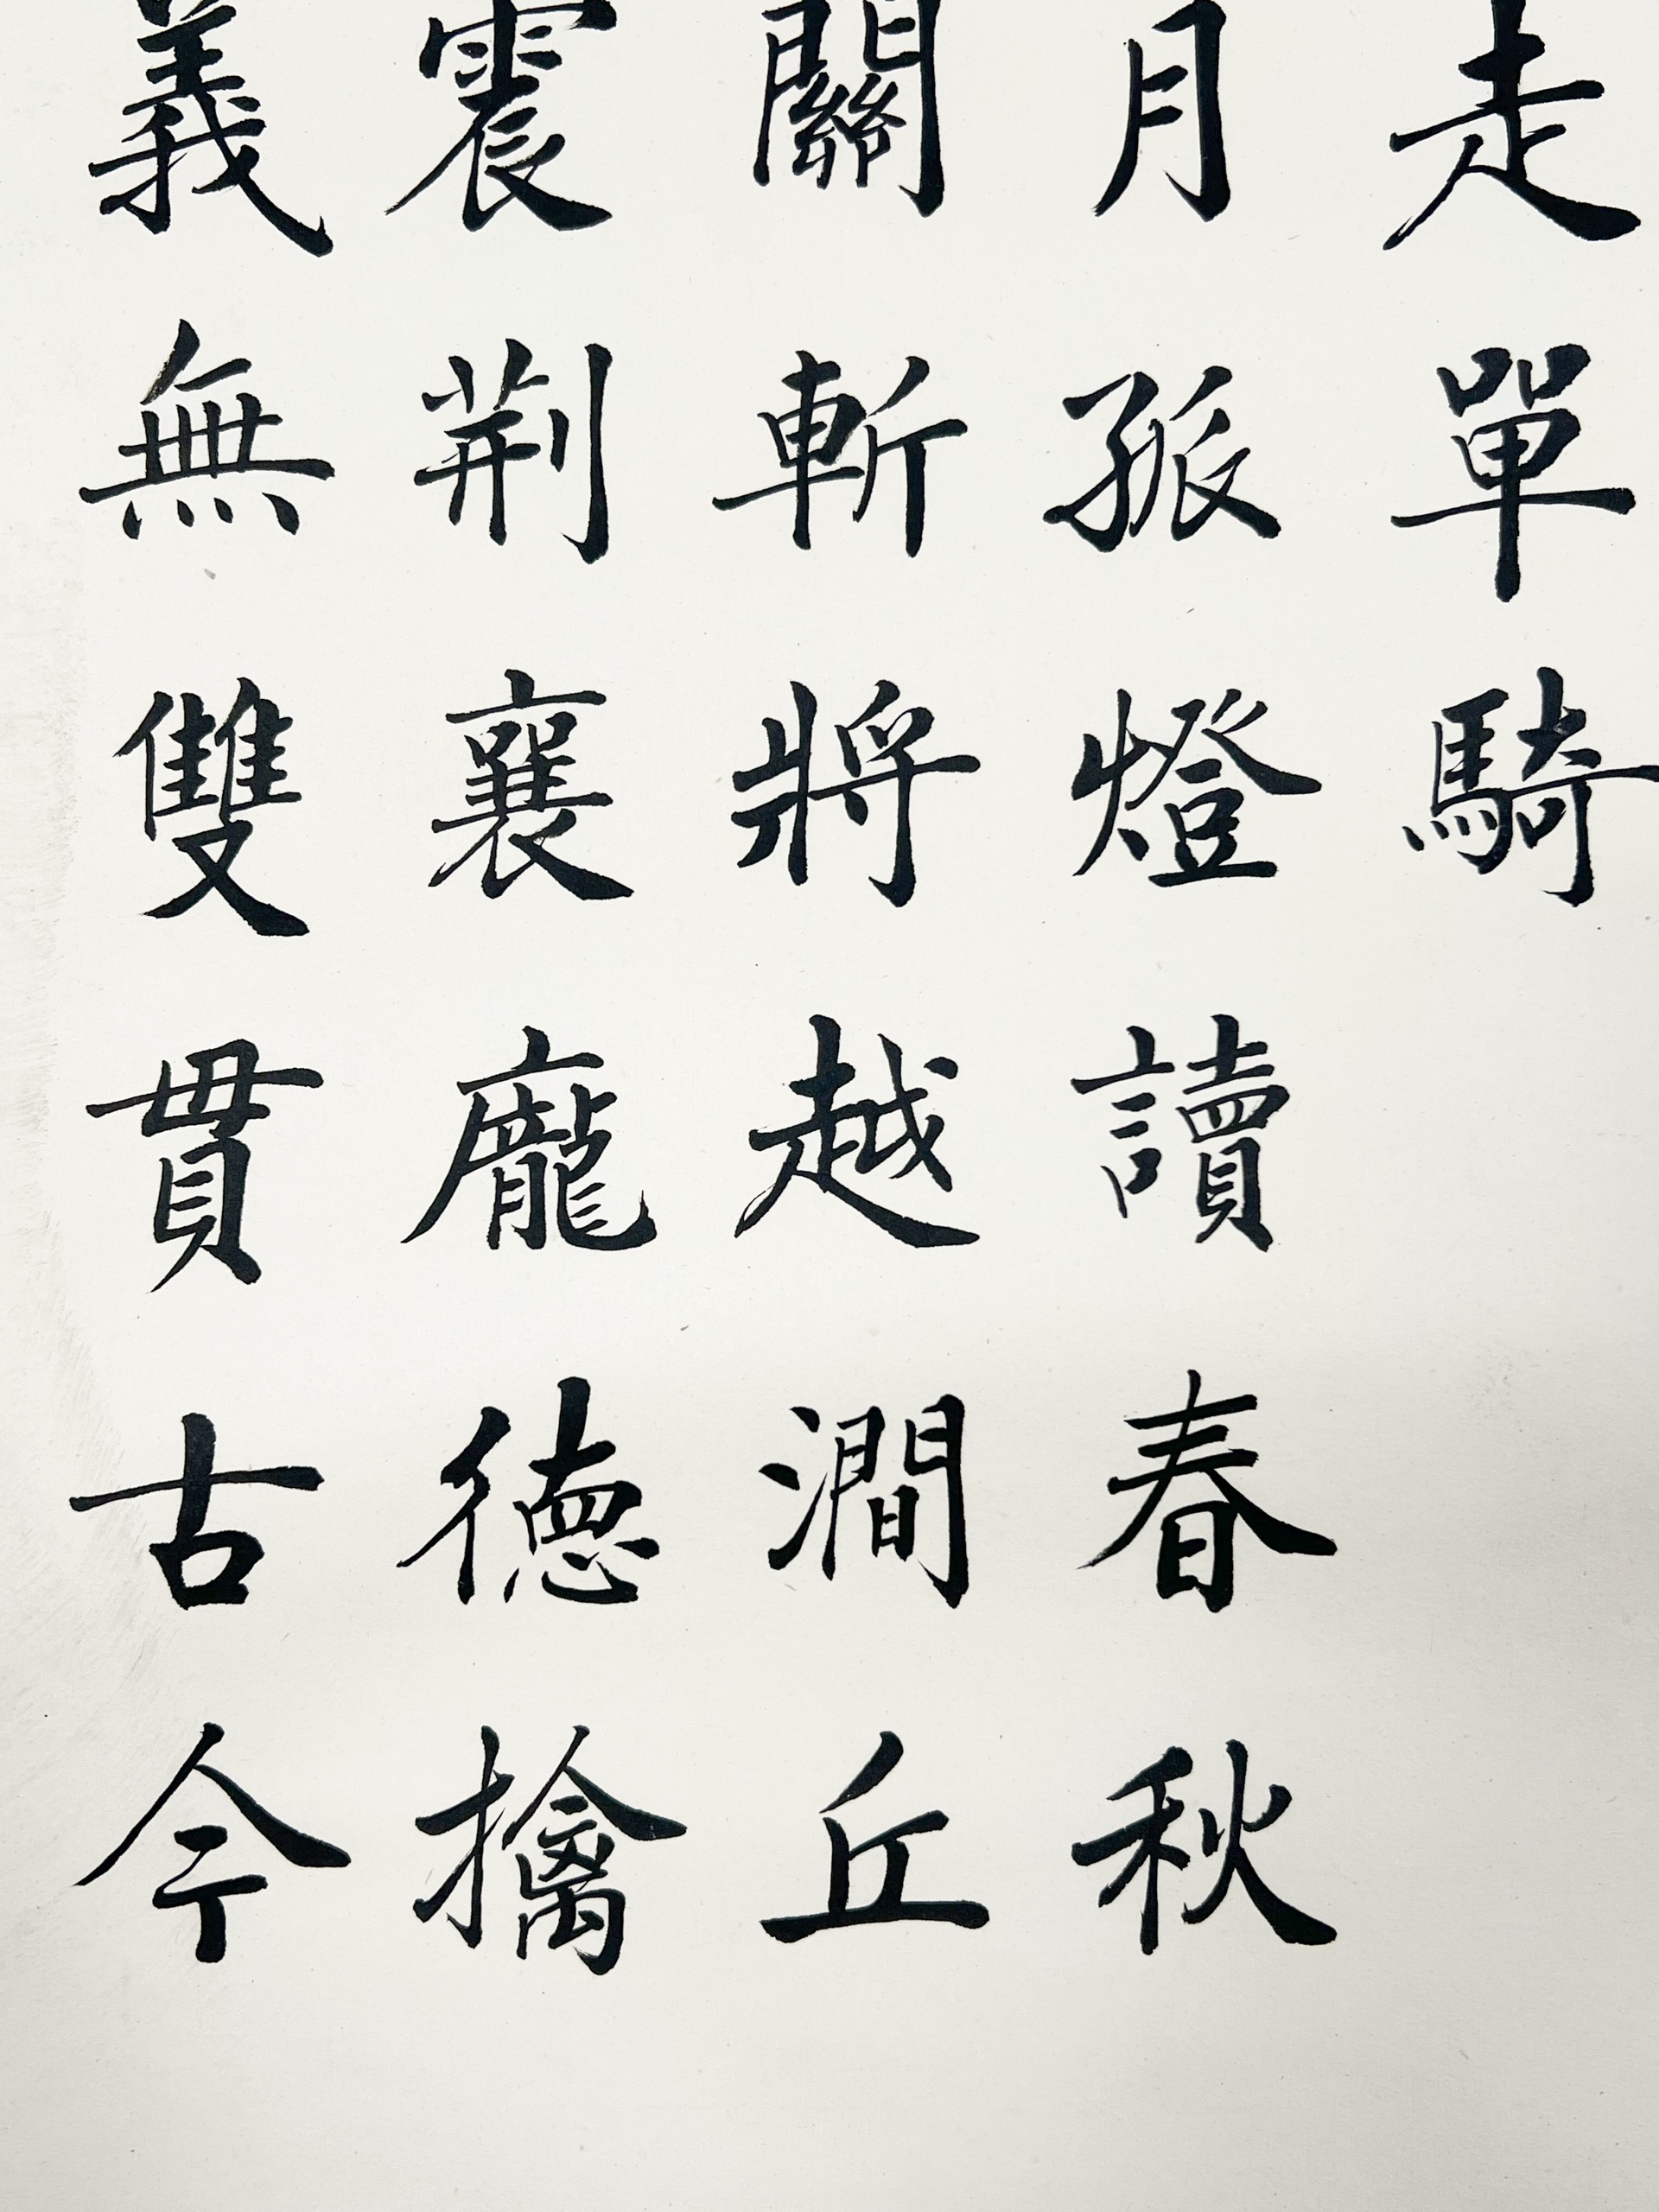 走單騎
月孤燈讀春秋
關斬將越澗丘
震荆襄龐德擒
義無雙貫古今